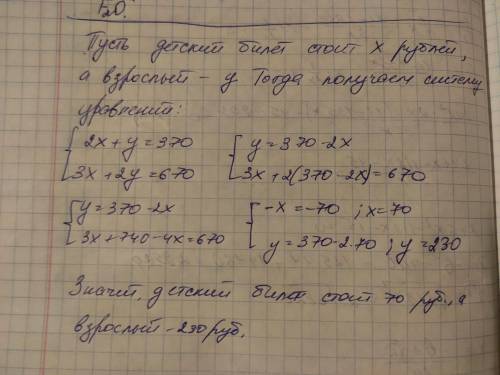 520.
Пусть детский билет стоит x рублей,
а взрослый – y Тогда получаем систему
уравнений:
{ 2x + y = 370 { y = 370 - 2x
3x + 2y = 670 3x + 2(370 - 2x) = 670
{ y = 370 - 2x { -x = -70 ; x = 70
3x + 740 - 4x = 670 y = 370 - 2·70 ; y = 230
Значит, детский билет стоит 70 руб., а
взрослый - 230 руб.